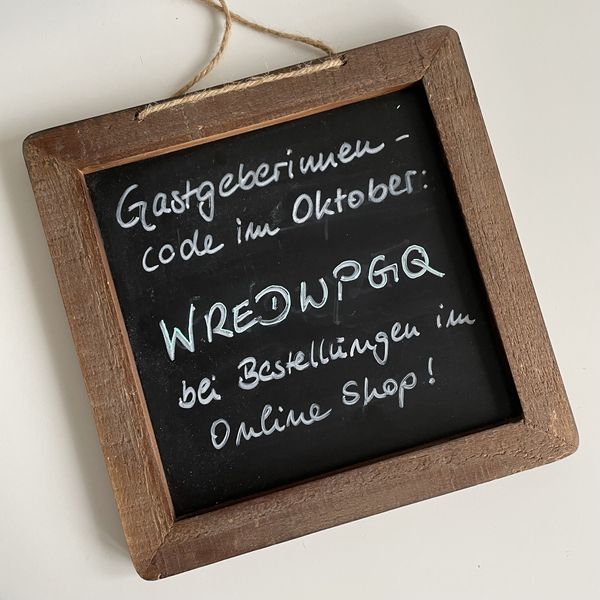 Gastgeberinnen-
code im Oktober:
WREDWPGQ
bei Bestellungen im
Online Shop!